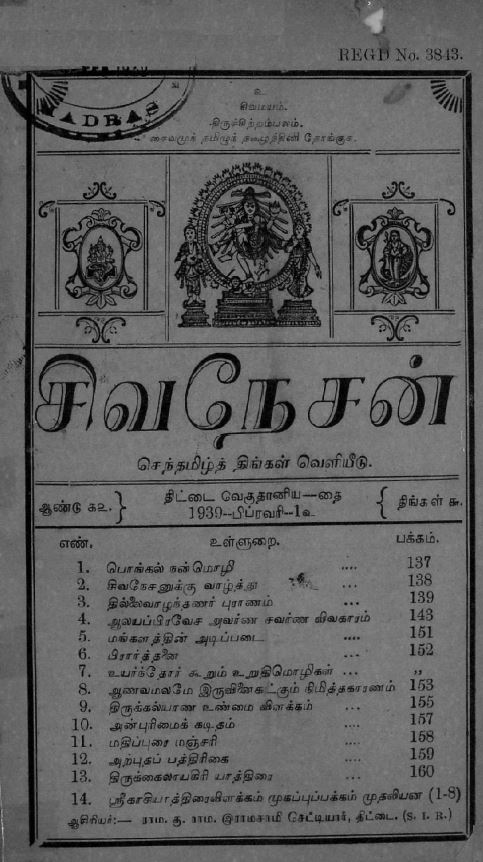 REGD No. 3843.
FEB 1939
MADRAS
உ
சிவமயம்.
திருச்சிற்றம்பலம்.
சைவமுந் தமிழுந் தழைத்தினி தோங்குக.
சிவநேசன்
செந்தமிழ்த் திங்கள் வெளியீடு.
ஆண்டு ௧௨. } திட்டை வெகுதானிய—தை { திங்கள் ௬.
1939—பிப்ரவரி—1௳
எண். உள்ளுறை. பக்கம்.
1. பொங்கல் நன்மொழி .... 137
2. சிவநேசனுக்கு வாழ்த்து ... 138
3. தில்லைவாழந்தணர் புராணம் ... 139
4. ஆலயப்பிரவேச அவர்ண சவர்ண விவகாரம் ... 143
5. மங்களத்தின் அடிப்படை .... 151
6. பிரார்த்தனை ... 152
7. உயர்ந்தோர் கூறும் உறுதிமொழிகள் ... ,,
8. ஆணவமலமே இருவினைகட்கும் நிமித்தகாரணம் 153
9. திருக்கல்யாண உண்மை விளக்கம் ... 155
10. அன்புரிமைக் கடிதம் .... 157
11. மதிப்புரை மஞ்சரி .... 158
12. அற்புதப் பத்திரிகை .... 159
13. திருக்கைலாயகிரி யாத்திரை ... 160
14. ஸ்ரீகாசியாத்திரைவிளக்கம் முகப்புப்பக்கம் முதலியன (1-8)
ஆசிரியர்:— ராம. கு. ராம. இராமசாமி செட்டியார், திட்டை. (S. I. R.)